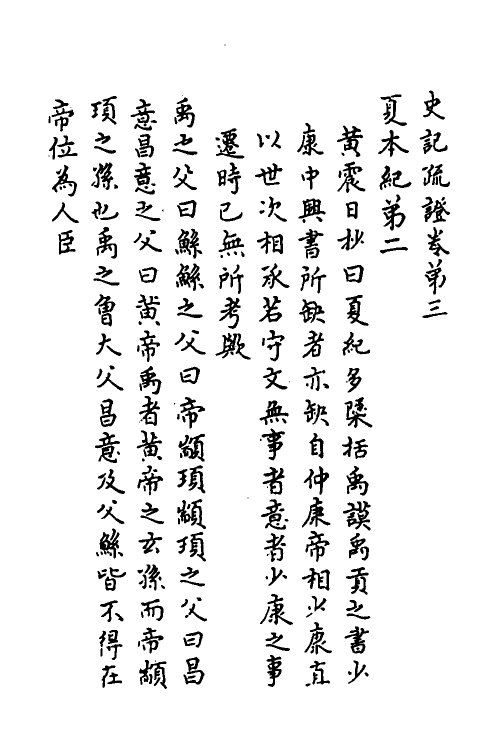 史記疏證卷第三
夏本紀第二
黃震日抄曰夏紀多檃括禹謨禹貢之書少
康中興書所缺者亦缺自仲康帝相少康直
以世次相承若守文無事者意者少康之事
遷時已無所考歟
禹之父曰鯀鯀之父曰帝顓頊顓頊之父曰昌
意昌意之父曰黃帝禹者黃帝之玄孫而帝顓
頊之孫也禹之曾大父昌意及父鯀皆不得在
帝位為人臣